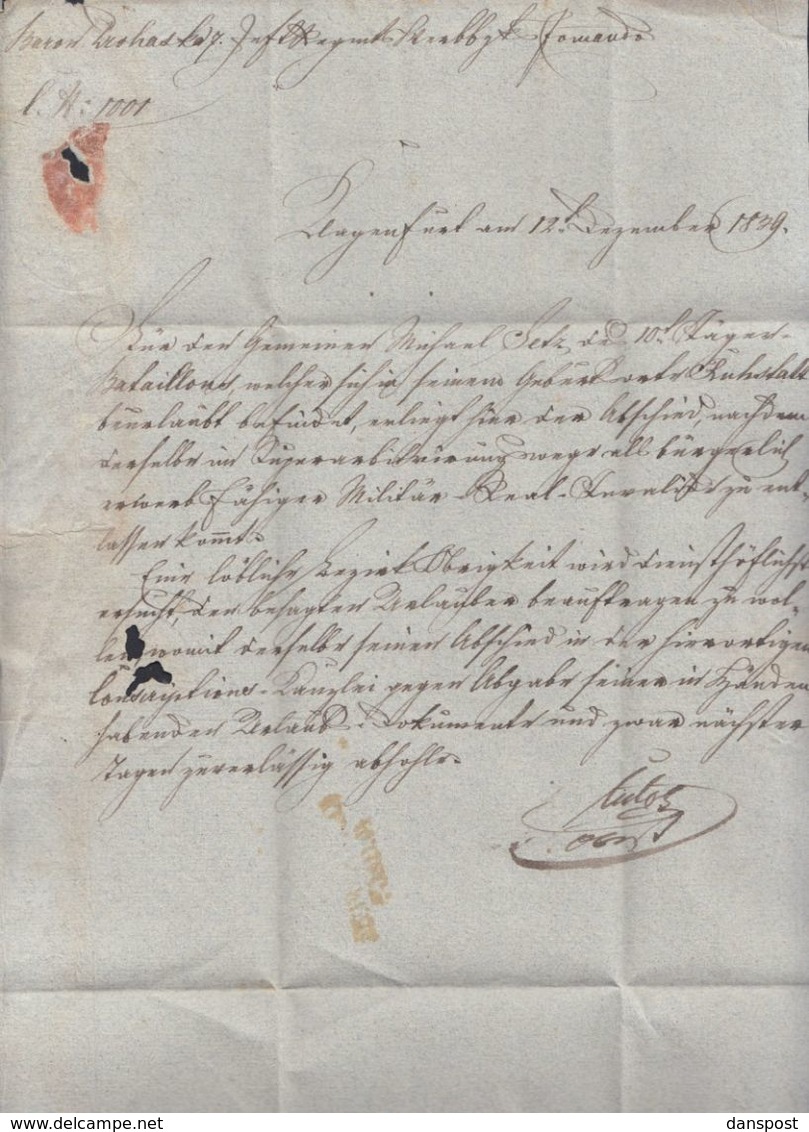 Baron Prohaska 7. Inft Regmts Werbbzk Comando
E. N: 1001
Klagenfurt am 12t Dezember 1839.
Für den Gemeinen Michael Setz, des 10t Jäger-
Bataillons, welcher sich in seinem Geburtsorte
beurlaubt befindet, erliegt hier der Abschied, nachdem
derselbe im Superarbitrirungswege als bürgerlich
erwerbsfähiger Militär-Real-Invalid zu ent
lassen kommt.
Eine löbliche Bezirks Obrigkeit wird diensthöflichst
ersucht, den besagten Urlauber beauftragen zu wol-
len, womit derselbe seinen Abschied in der hierortigen
Conscriptions-Kanzlei gegen Abgabe seiner in Händen
habenden Urlaubs-Dokumente und zwar nächster
Tagen zuverlässig abhohle.
Oberst
delcampe.net
danspost